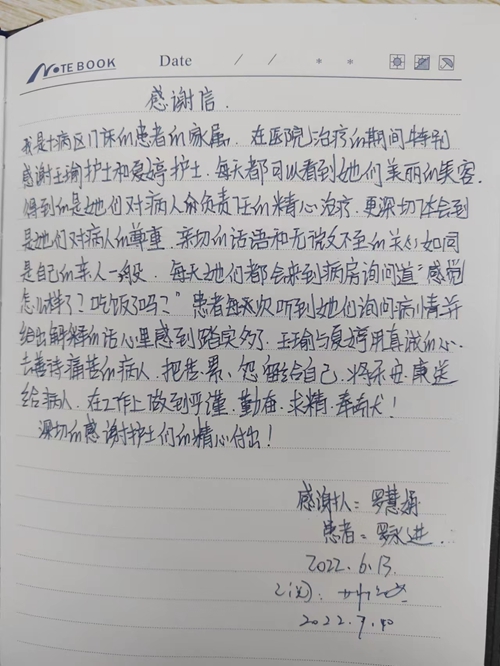 NOTEBOOK Date / / * *
感谢信.
我是十病区17床的患者的家属. 在医院治疗的期间特别
感谢王瑜护士和夏婷护士. 每天都可以看到她们美丽的笑容.
得到的是她们对病人负责任的精心治疗. 更深切体会到
是她们对病人的尊重. 亲切的话语和无微不至的关心如同
是自己的亲人一般. 每天她们都会来到病房询问道:"感觉
怎么样了? 吃饭了吗?" 患者每次听到她们询问病情并
给出解释的话心里感到踏实多了. 王瑜与夏婷用真诚的心.
去善待痛苦的病人. 把苦、累、怨留给自己. 将安康送
给病人. 在工作上做到严谨. 勤奋. 求精. 奉献!
深切的感谢护士们的精心付出!
感谢人: 罗慧
患者: 罗永进.
2022.6.13
2022.7.